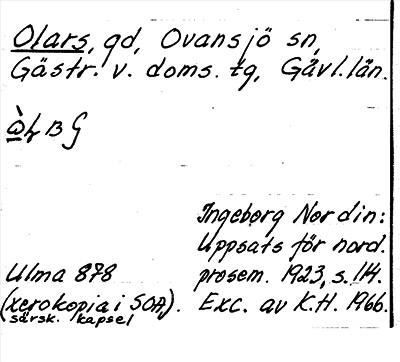 Olars, gd, Ovansjö sn,
Gästr. v. doms. tg, Gävl. län.
Ingeborg Nordin:
Uppsats för nord.
Ulma 878 prosem. 1923, s. 114.
(xerokopia i SOA). Exc. av K.H. 1966.
särsk. kapsel